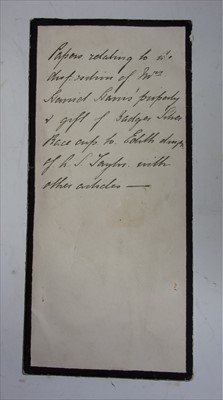 Papers relating to the
disposition of Mrs
Harriet Hams' property
& gift of Badger Silver
Race cup to Edith
of R S Taylor with
other articles —